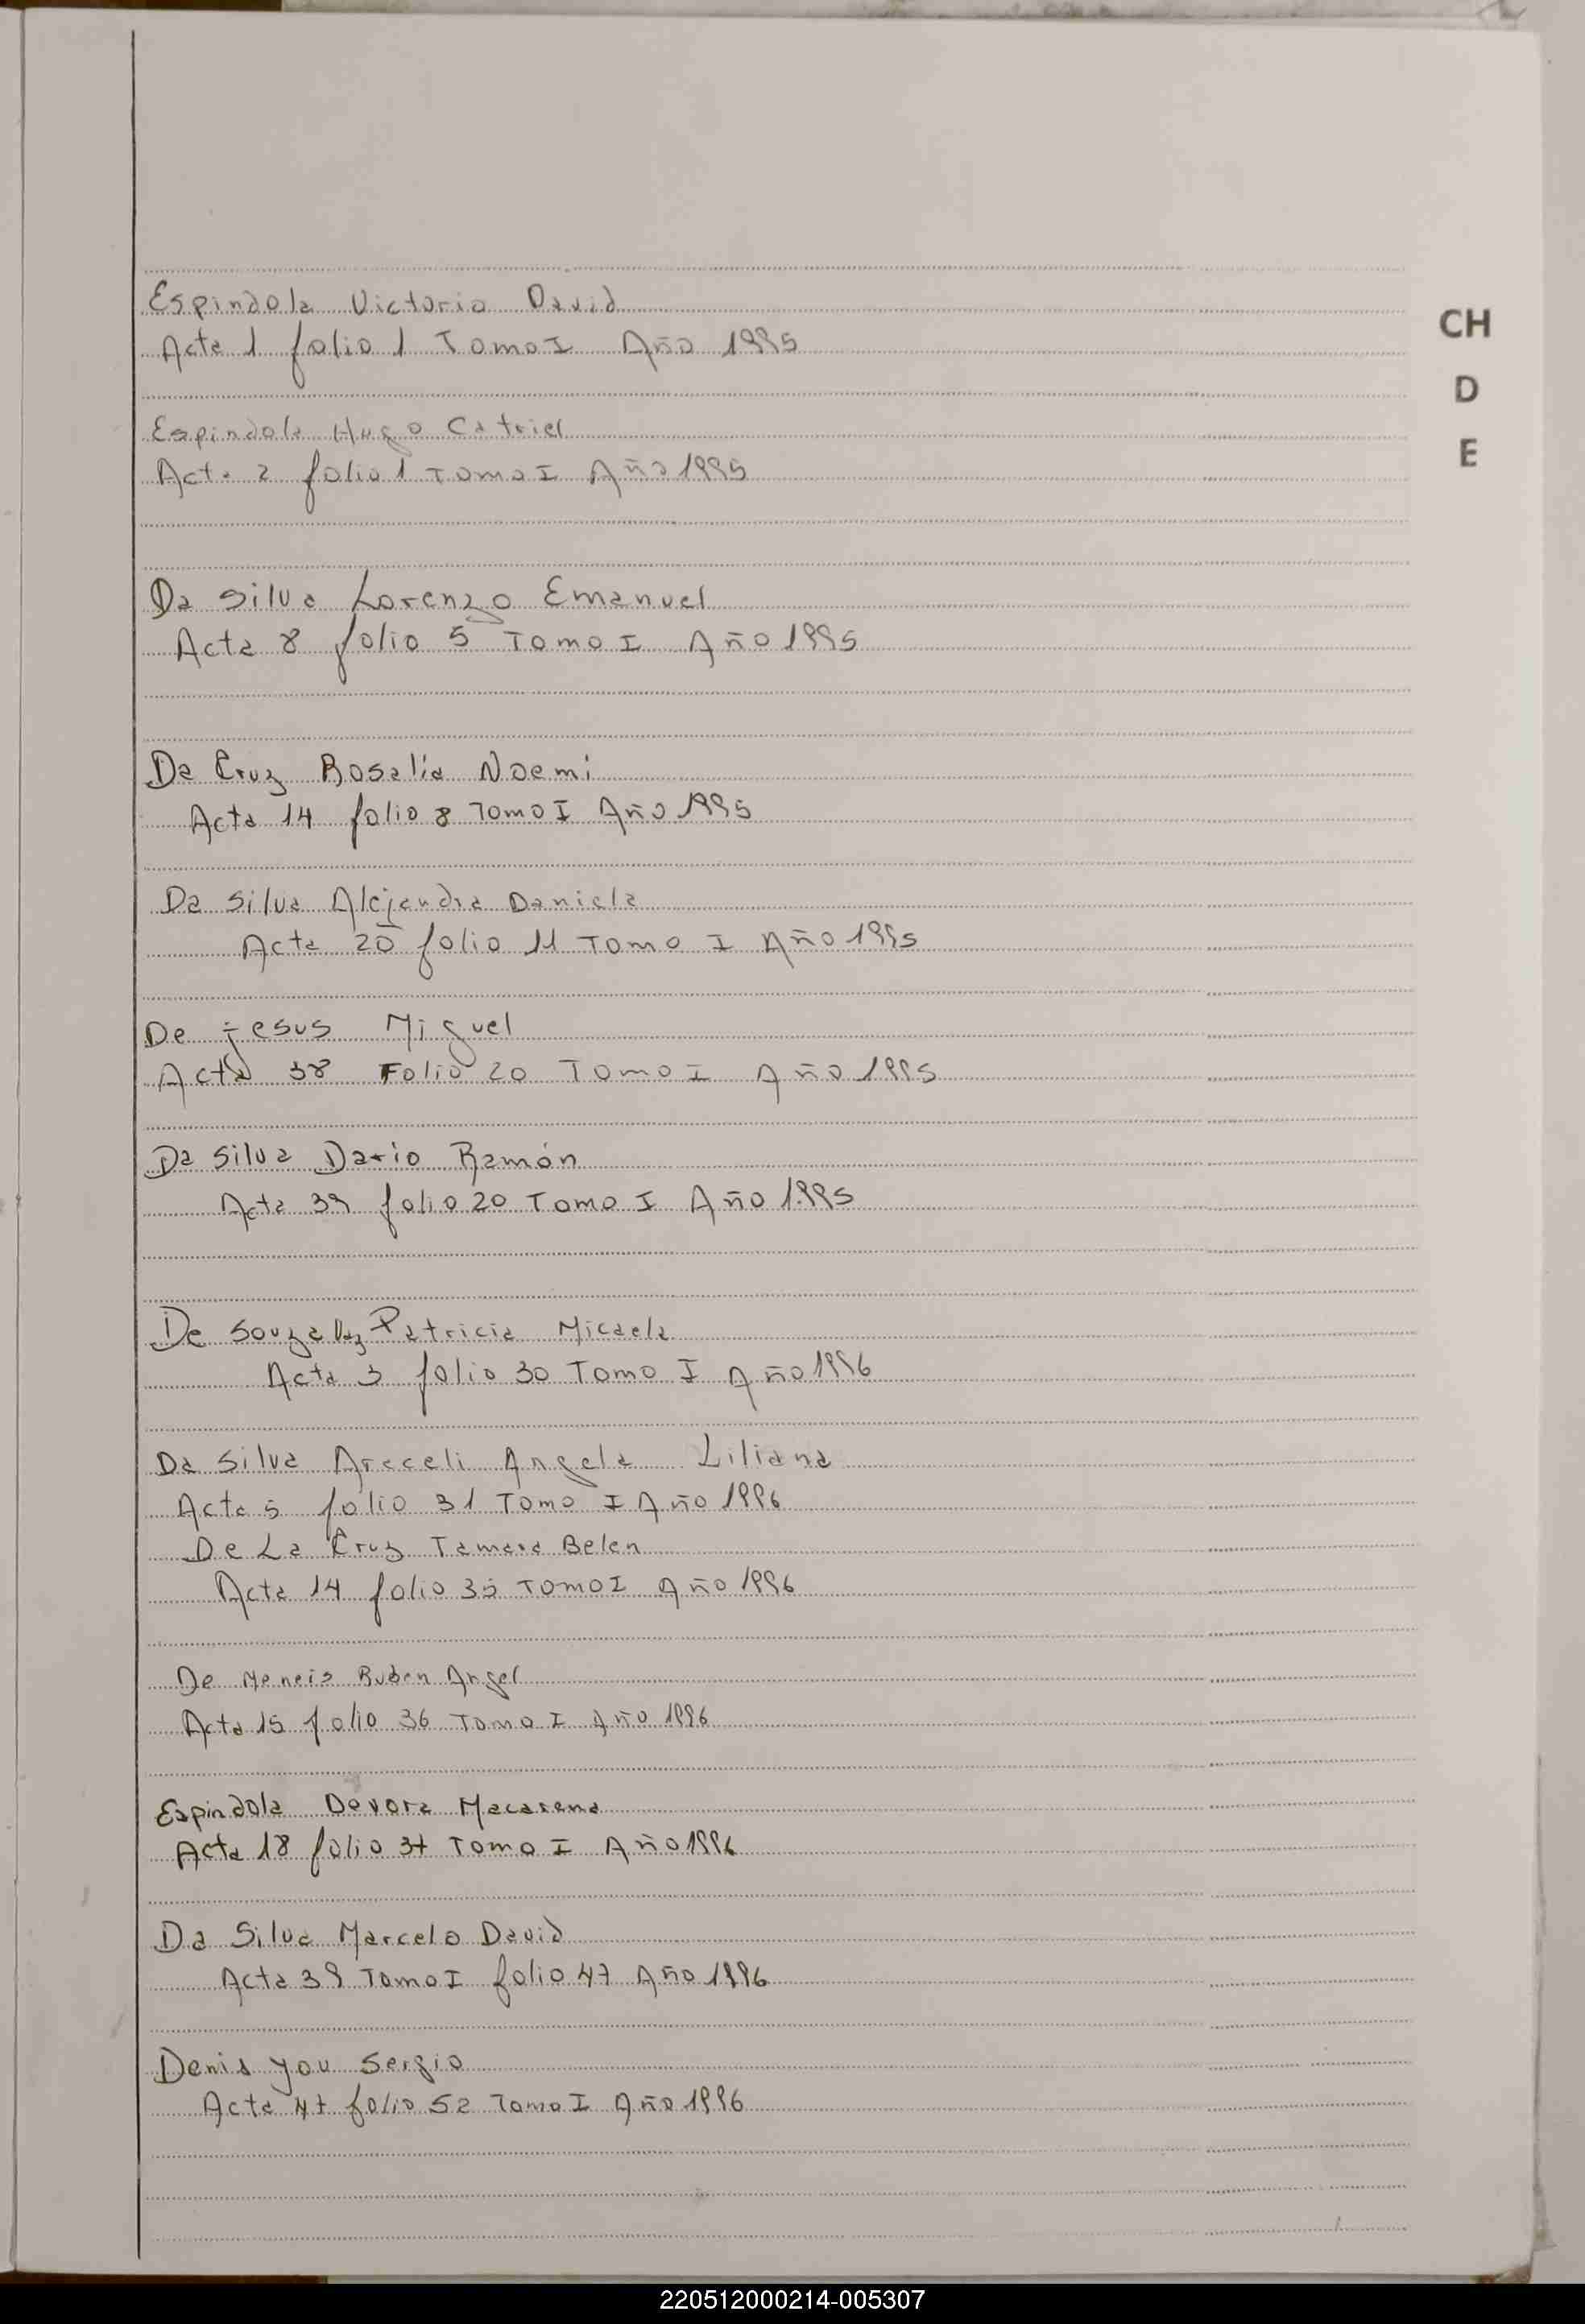 Espindola Victorio David
Acta 1 folio 1 Tomo I Año 1995
CH
D
E
Espindola Hugo Catriel
Acta 2 folio 1 Tomo I Año 1995
Da Silva Lorenzo Emanuel
Acta 8 folio 5 Tomo I Año 1995
Da Cruz Rosalia Noemi
Acta 14 folio 8 Tomo I Año 1995
Da Silva Alejandra Daniela
Acta 20 folio 11 Tomo I Año 1995
De jesus Miguel
Acta 38 Folio 20 Tomo I Año 1995
Da Silva Dario Ramón
Acta 39 folio 20 Tomo I Año 1995
De Souza Patricia Micaela
Acta 3 folio 30 Tomo I Año 1996
Da Silva Araceli Angela Liliana
Acta 5 folio 31 Tomo I Año 1996
De La Cruz Tamara Belen
Acta 14 folio 35 Tomo I Año 1996
De Ruben Angel
Acta 15 folio 36 Tomo I Año 1996
Espindola Devora Macarena
Acta 18 folio 37 Tomo I Año 1996
Da Silva Marcelo David
Acta 39 Tomo I folio 47 Año 1996
Denis you Sergio
Acta 47 folio 52 Tomo I Año 1996
220512000214-005307